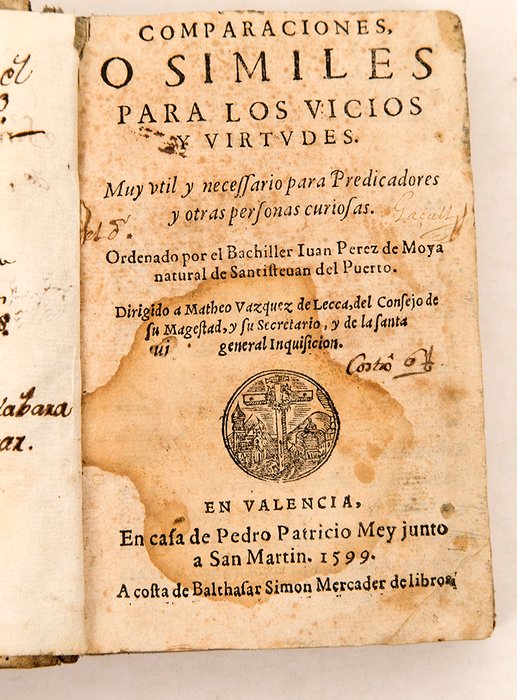 COMPARACIONES,
O SIMILES
PARA LOS VICIOS
Y VIRTVDES.
Muy vtil y necessario para Predicadores
y otras personas curiosas.
Ordenado por el Bachiller Iuan Perez de Moya
natural de Santisteuan del Puerto.
Dirigido a Matheo Vazquez de Lecca, del Consejo de
su Magestad, y su Secretario, y de la santa
general Inquisicion.
EN VALENCIA,
En casa de Pedro Patricio Mey junto
a San Martin. 1599.
A costa de Balthasar Simon Mercader de libros